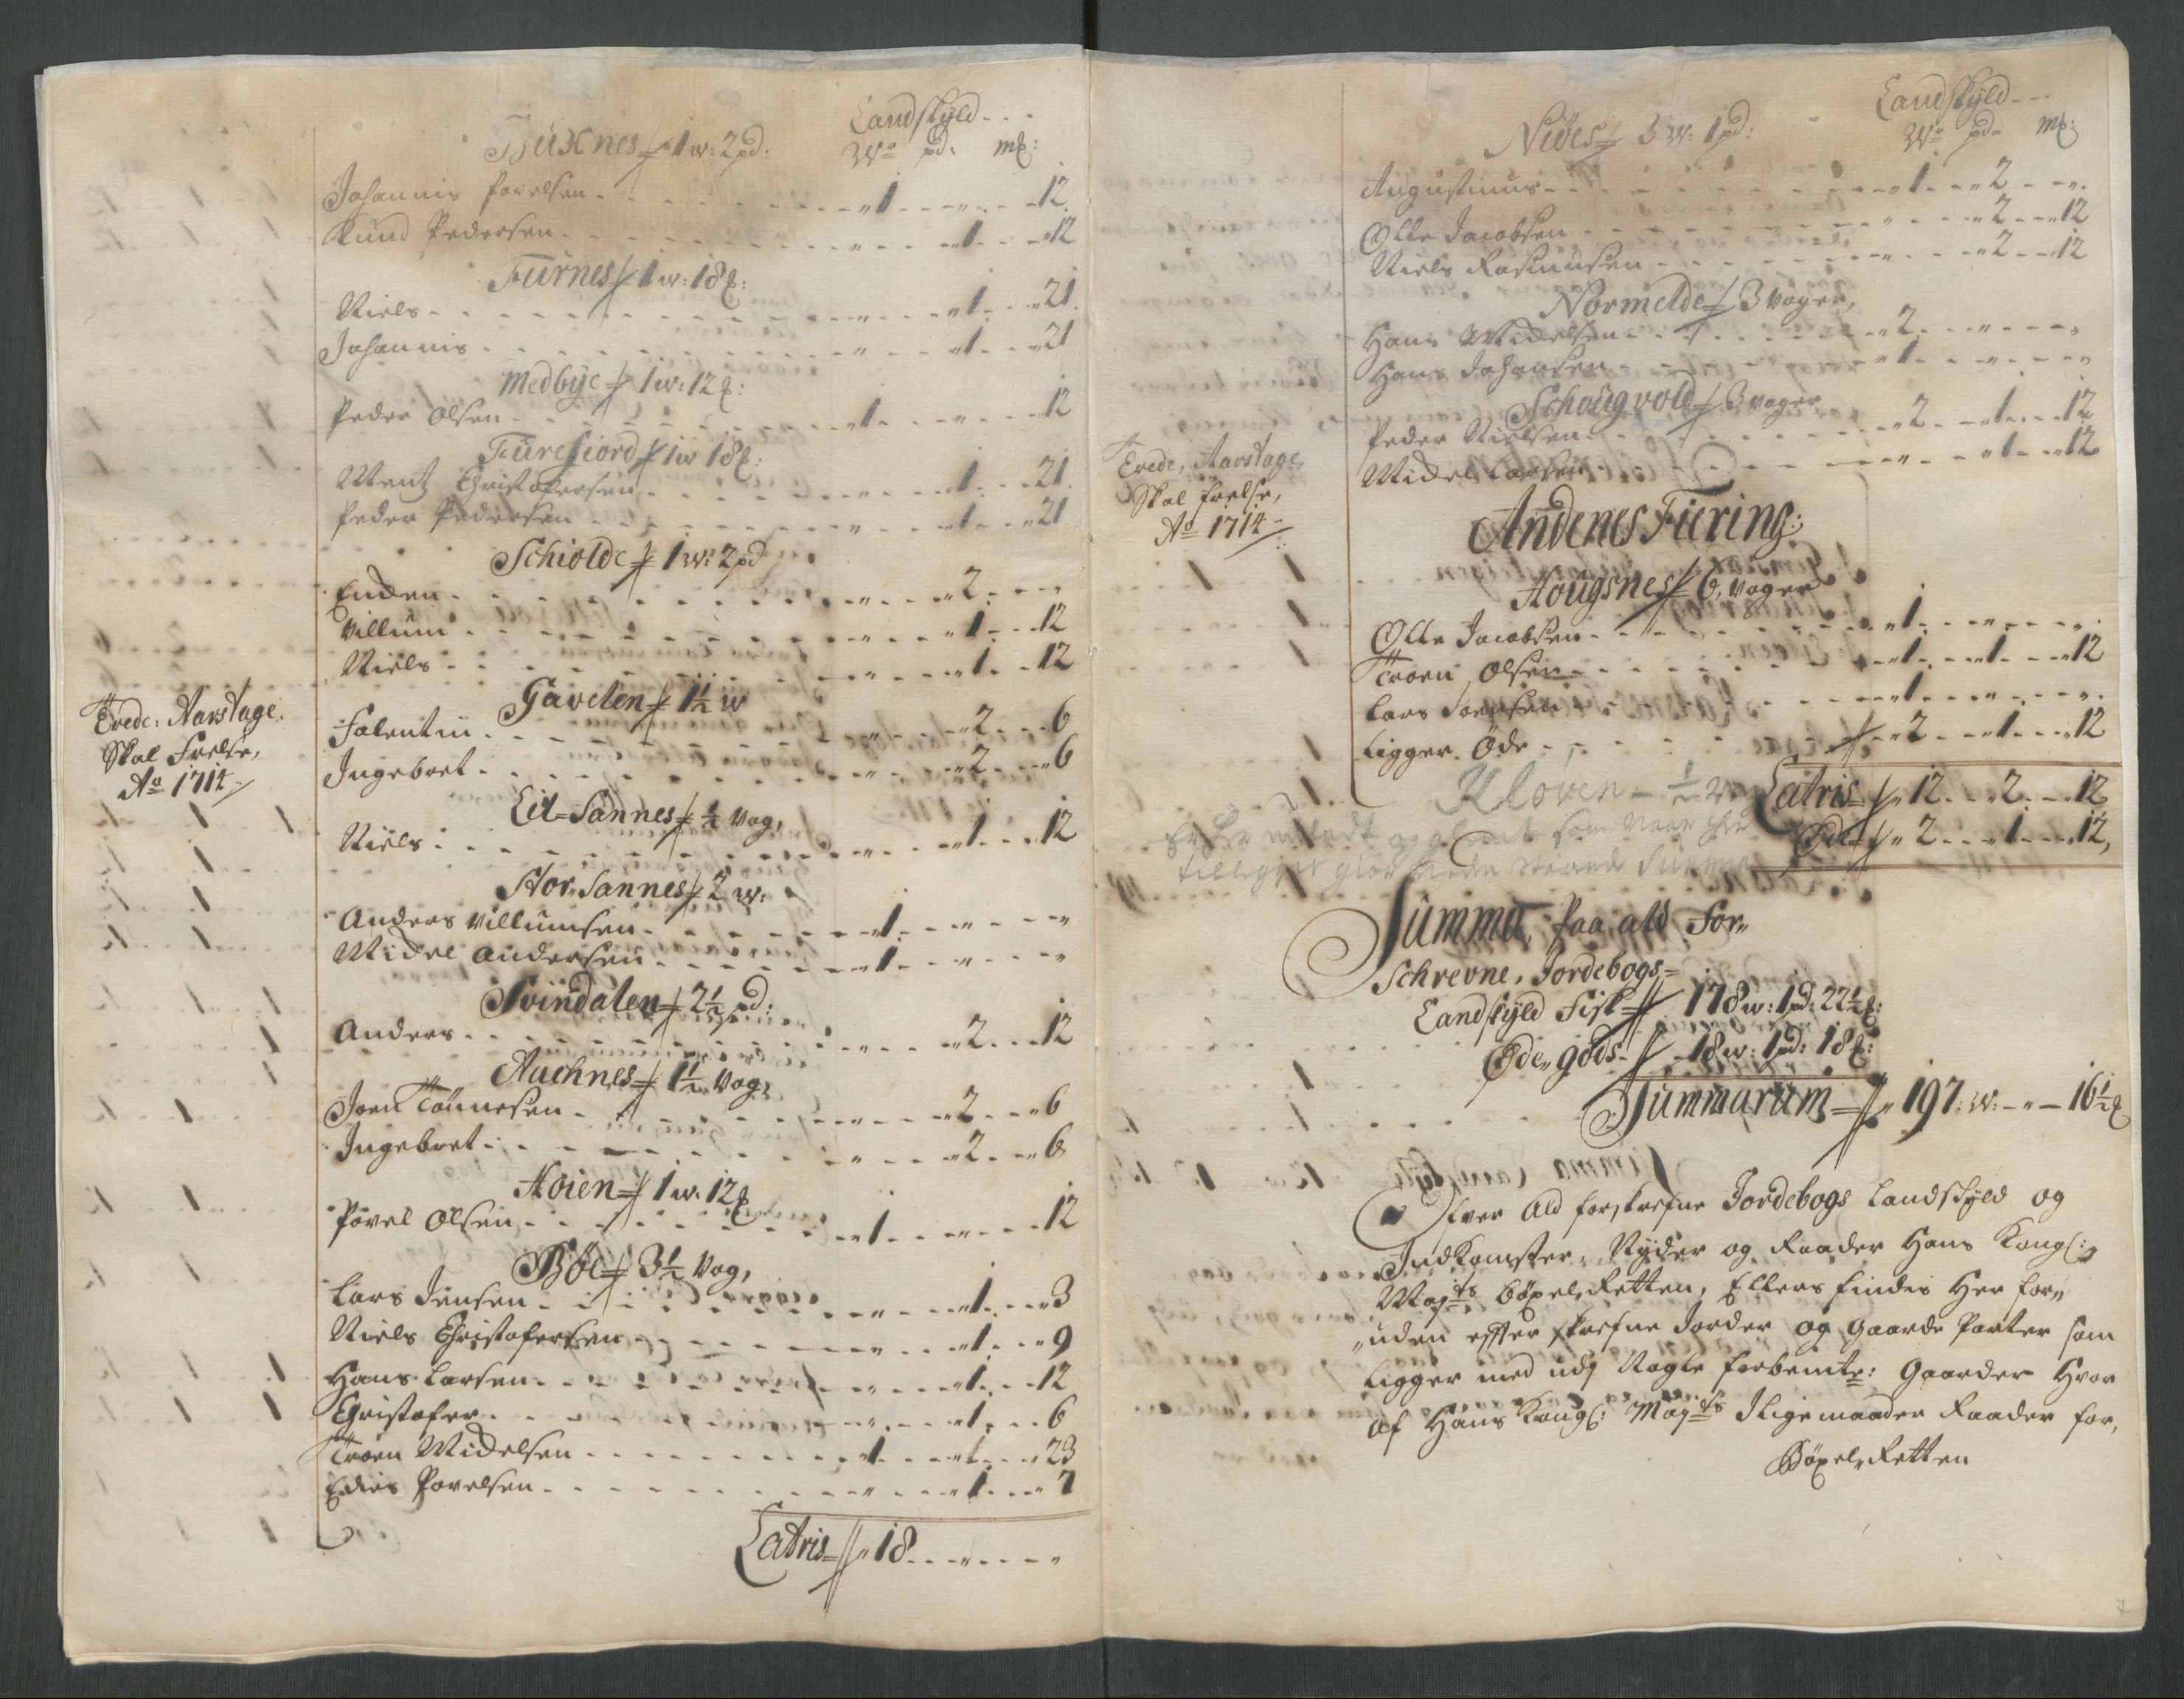 Landskyld
Buxnes 1 w: 2 pd:
W: pd: mk:
Johannis Povelsen 1 " 12
Knud Pedersen " 1 12
Furnes 1 w: 18 mk:
Niels " 1 21
Johannis " 1 21
Medbye 1 w: 12 mk:
Peder Olsen 1 " 12
Furefiord 1 w 18 mk:
Ment Christofersen " 1 21
Peder Pedersen " 1 21
Schiolde 1 w: 2 pd
Enchen " 2 "
Villum " 1 12
Niels " 1 12
Gavelen 1½ w
Falentin " 2 6
Ingebret " 2 6
Trede, Aarstage.
Skal Frelse,
Ao 1714
Lil=Sannes ½ vog,
Niels " 1 12
Stor Sannes 2 w:
Anders Villumsen 1 " "
Michel Andersen 1 " "
Svindalen 2½ pd:
Anders " 2 12
Aachnes 1½ vog,
Joen Tönnesen " 2 6
Ingebret " 2 6
Hoien 1 w: 12 mk
Povel Olsen 1 " 12
Böe 3½ vog,
Lars Jensen " 1 3
Niels Christofersen " 1 9
Hans Larsen " 1 12
Christofer " 1 6
Troen Michelsen 1 1 23
Povelsen " 1 7
Latris 18 " "
Landskyld
Nöes 3 w: 1 pd:
W: pd: mk:
Augustinus 1 2 "
Olle Jacobsen " 2 12
Niels Rasmusen " 2 12
Normelde 3 voger,
Hans Michelsen 2 " "
Hans Johansen 1 " "
Schougvold 3 voger
Peder Nielsen 2 1 12
Michel Larsen " 1 12
Trede, Aarstage,
Skal frelse,
Ao 1714
Andenes Fiering:
Hougsnes 6, voger
Olle Jacobsen 1 " "
Troen Olsen 1 1 12
Lars 1 " "
Ligger Öde 2 1 12
Klöven ½ w
Latris 12 2 12
Öde 2 1 12,
Summa, paa ald For„
Schrevne, Jordebogs=
Landskyld Fisk 178 w: 1 pd: 22½ mk:
Öde„gods 18 w: 1 pd: 18 mk:
Summarum 197: w: " 16½ mk
Ofver Ald forskrefne Jordebogs Landskyld og
Indkomster, Nyder og Raader Hans Kongl:
Mayts böxel„Retten, Ellers findis Her for„
„uden effter skrefne Jorder og gaarde Parter som
Ligger med udj Nogle forbemte: Gaarder Hvor
af Hans Kongl: Mayts Iligemaader Raader for,
Böxel„Retten